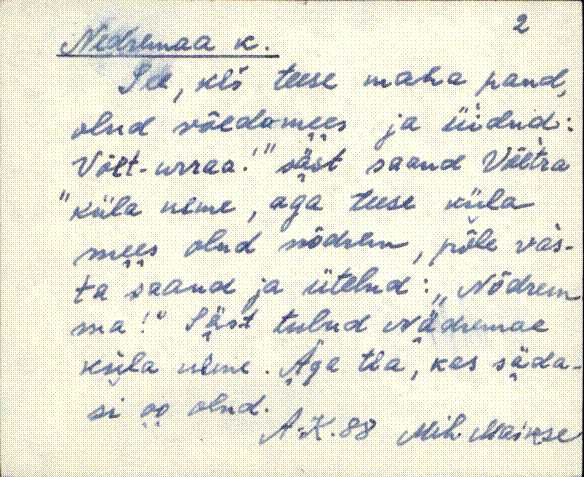 2
Nedremaa k.
See, kis teese maha pand,
olnd võedomees ja üidnd:
Võet-urraa!" säst saand Võetra
"küla nime, aga teese küla
mees olnd nõdrem, põle vas-
ta saand ja ütelnd: „Nõdrem
ma!" Säst tulnd Nädremaa
küla nime. Aga tia, kas säda-
si oo olnd.
A.K. 88 Mih.